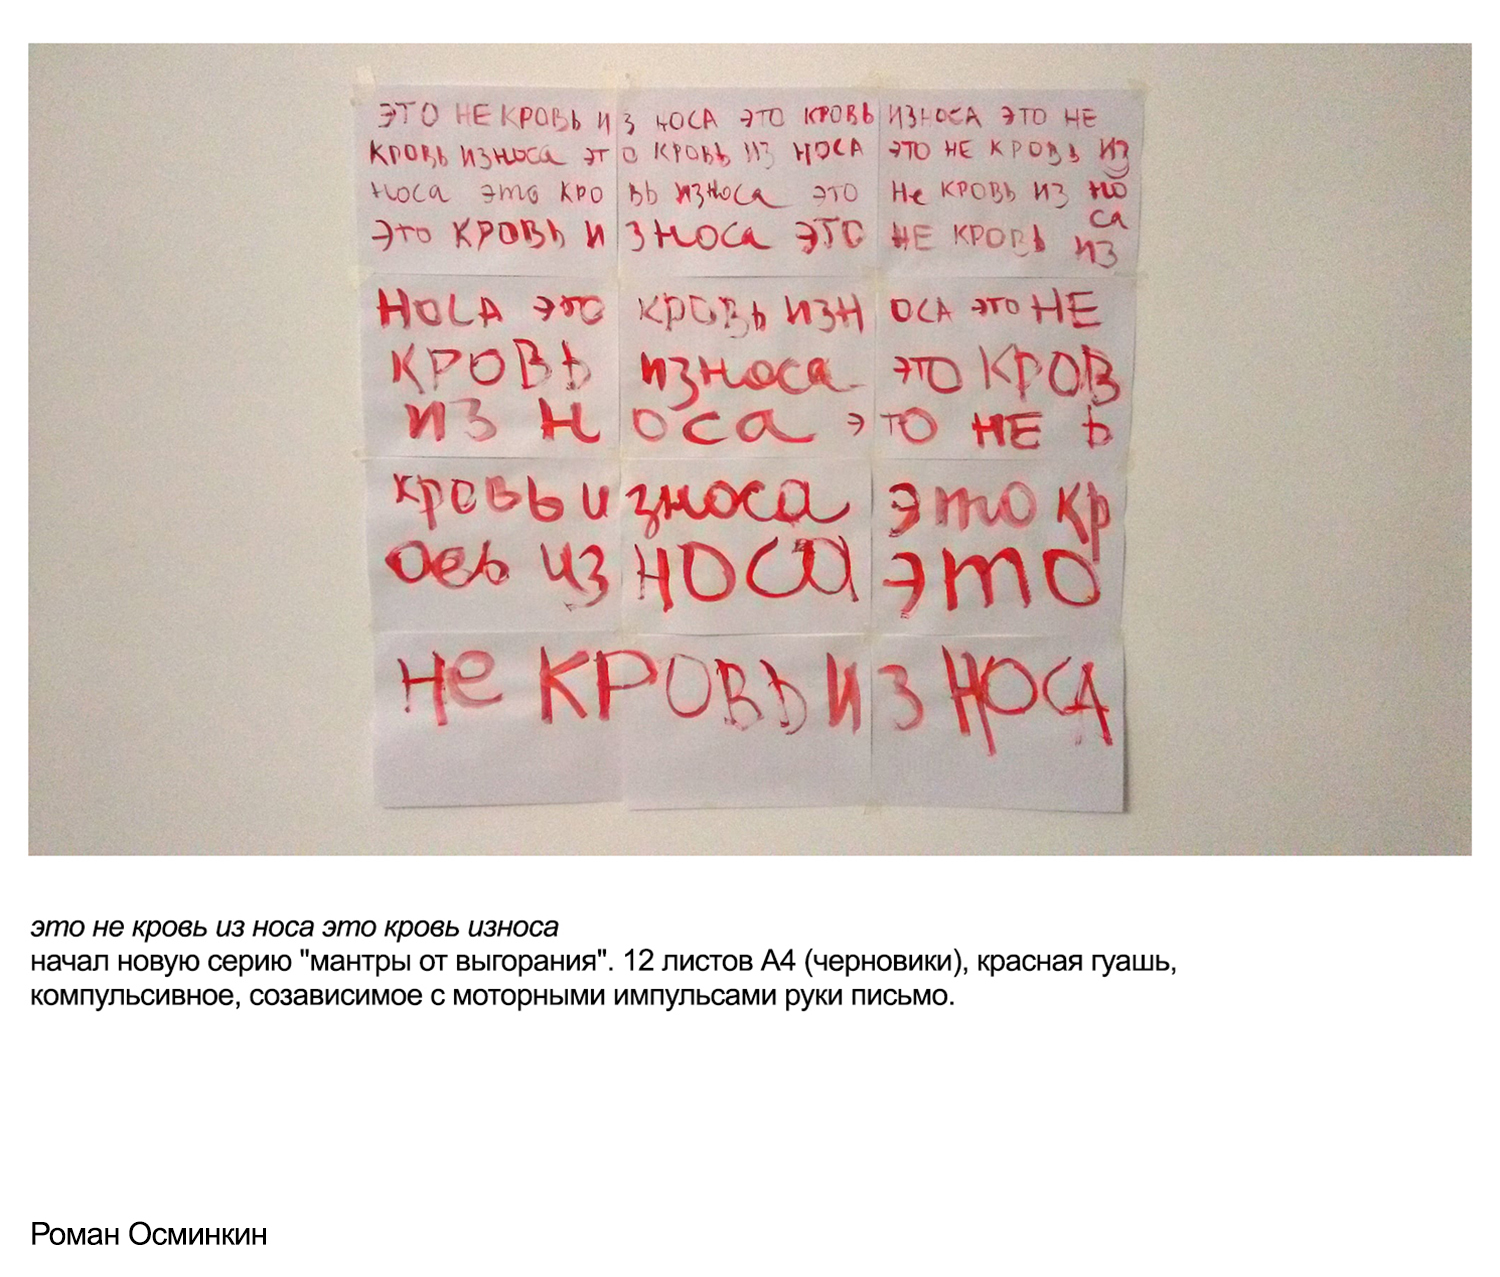 ЭТО НЕ КРОВЬ ИЗ НОСА ЭТО КРОВЬ ИЗНОСА ЭТО НЕ
КРОВЬ ИЗНОСА ЭТО КРОВЬ ИЗ НОСА ЭТО НЕ КРОВЬ ИЗ
НОСА это КРОВЬ ИЗНОСА ЭТО Не КРОВЬ ИЗ НО
са
Это КРОВЬ ИЗНОСа ЭТО НЕ КРОВЬ ИЗ
НОСА ЭТО КРОВЬ ИЗНОСА ЭТО НЕ
КРОВЬ ИЗНОСа ЭТО КРОВ
ИЗ Носа ЭТО НЕ Ь
кровь износа это кр
овь из НОСА это
Не КРОВЬ ИЗ НОСА
это не кровь из носа это кровь износа
начал новую серию "мантры от выгорания". 12 листов А4 (черновики), красная гуашь,
компульсивное, созависимое с моторными импульсами руки письмо.
Роман Осминкин